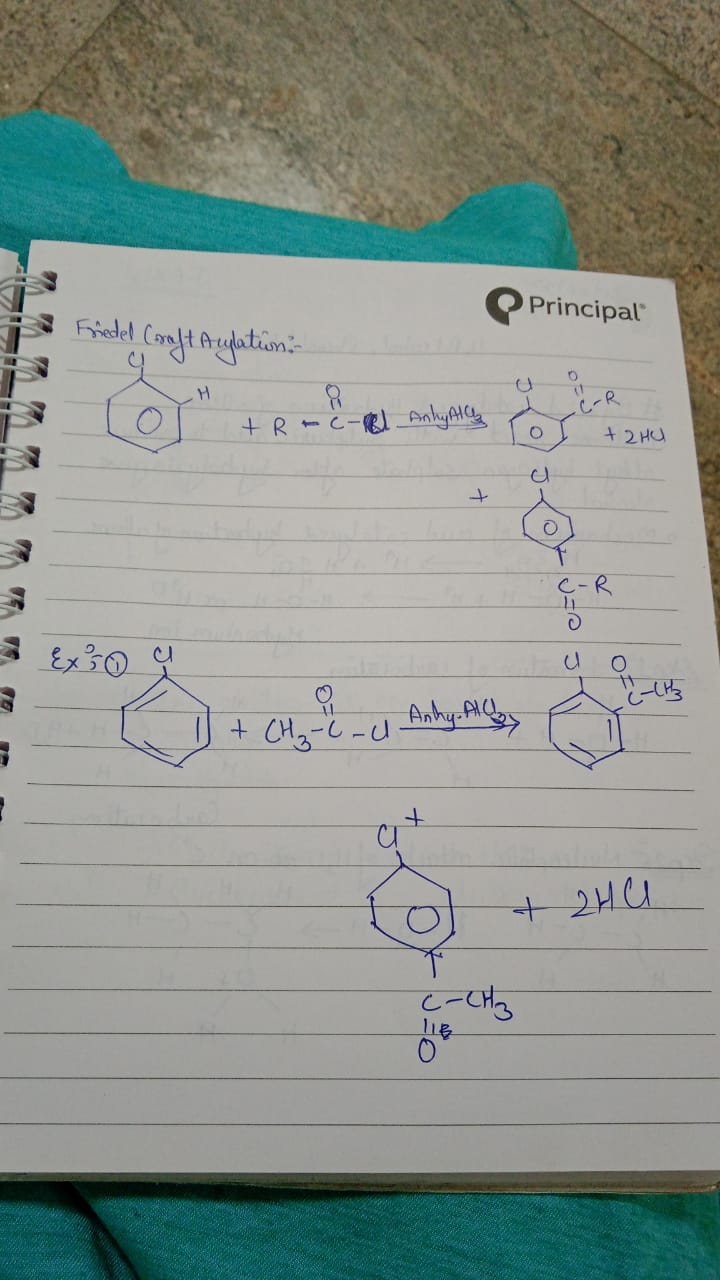 Principal
Friedel Craft Acylation:-
Cl
H
+ R - C - Cl Anhy AlCl3
O
Cl O
C-R
+ 2HCl
+
Cl
C-R
O
Ex:- ①
Cl
O
+ CH3-C-Cl Anhy. AlCl3
Cl O
C-CH3
+
Cl
+ 2HCl
C-CH3
O